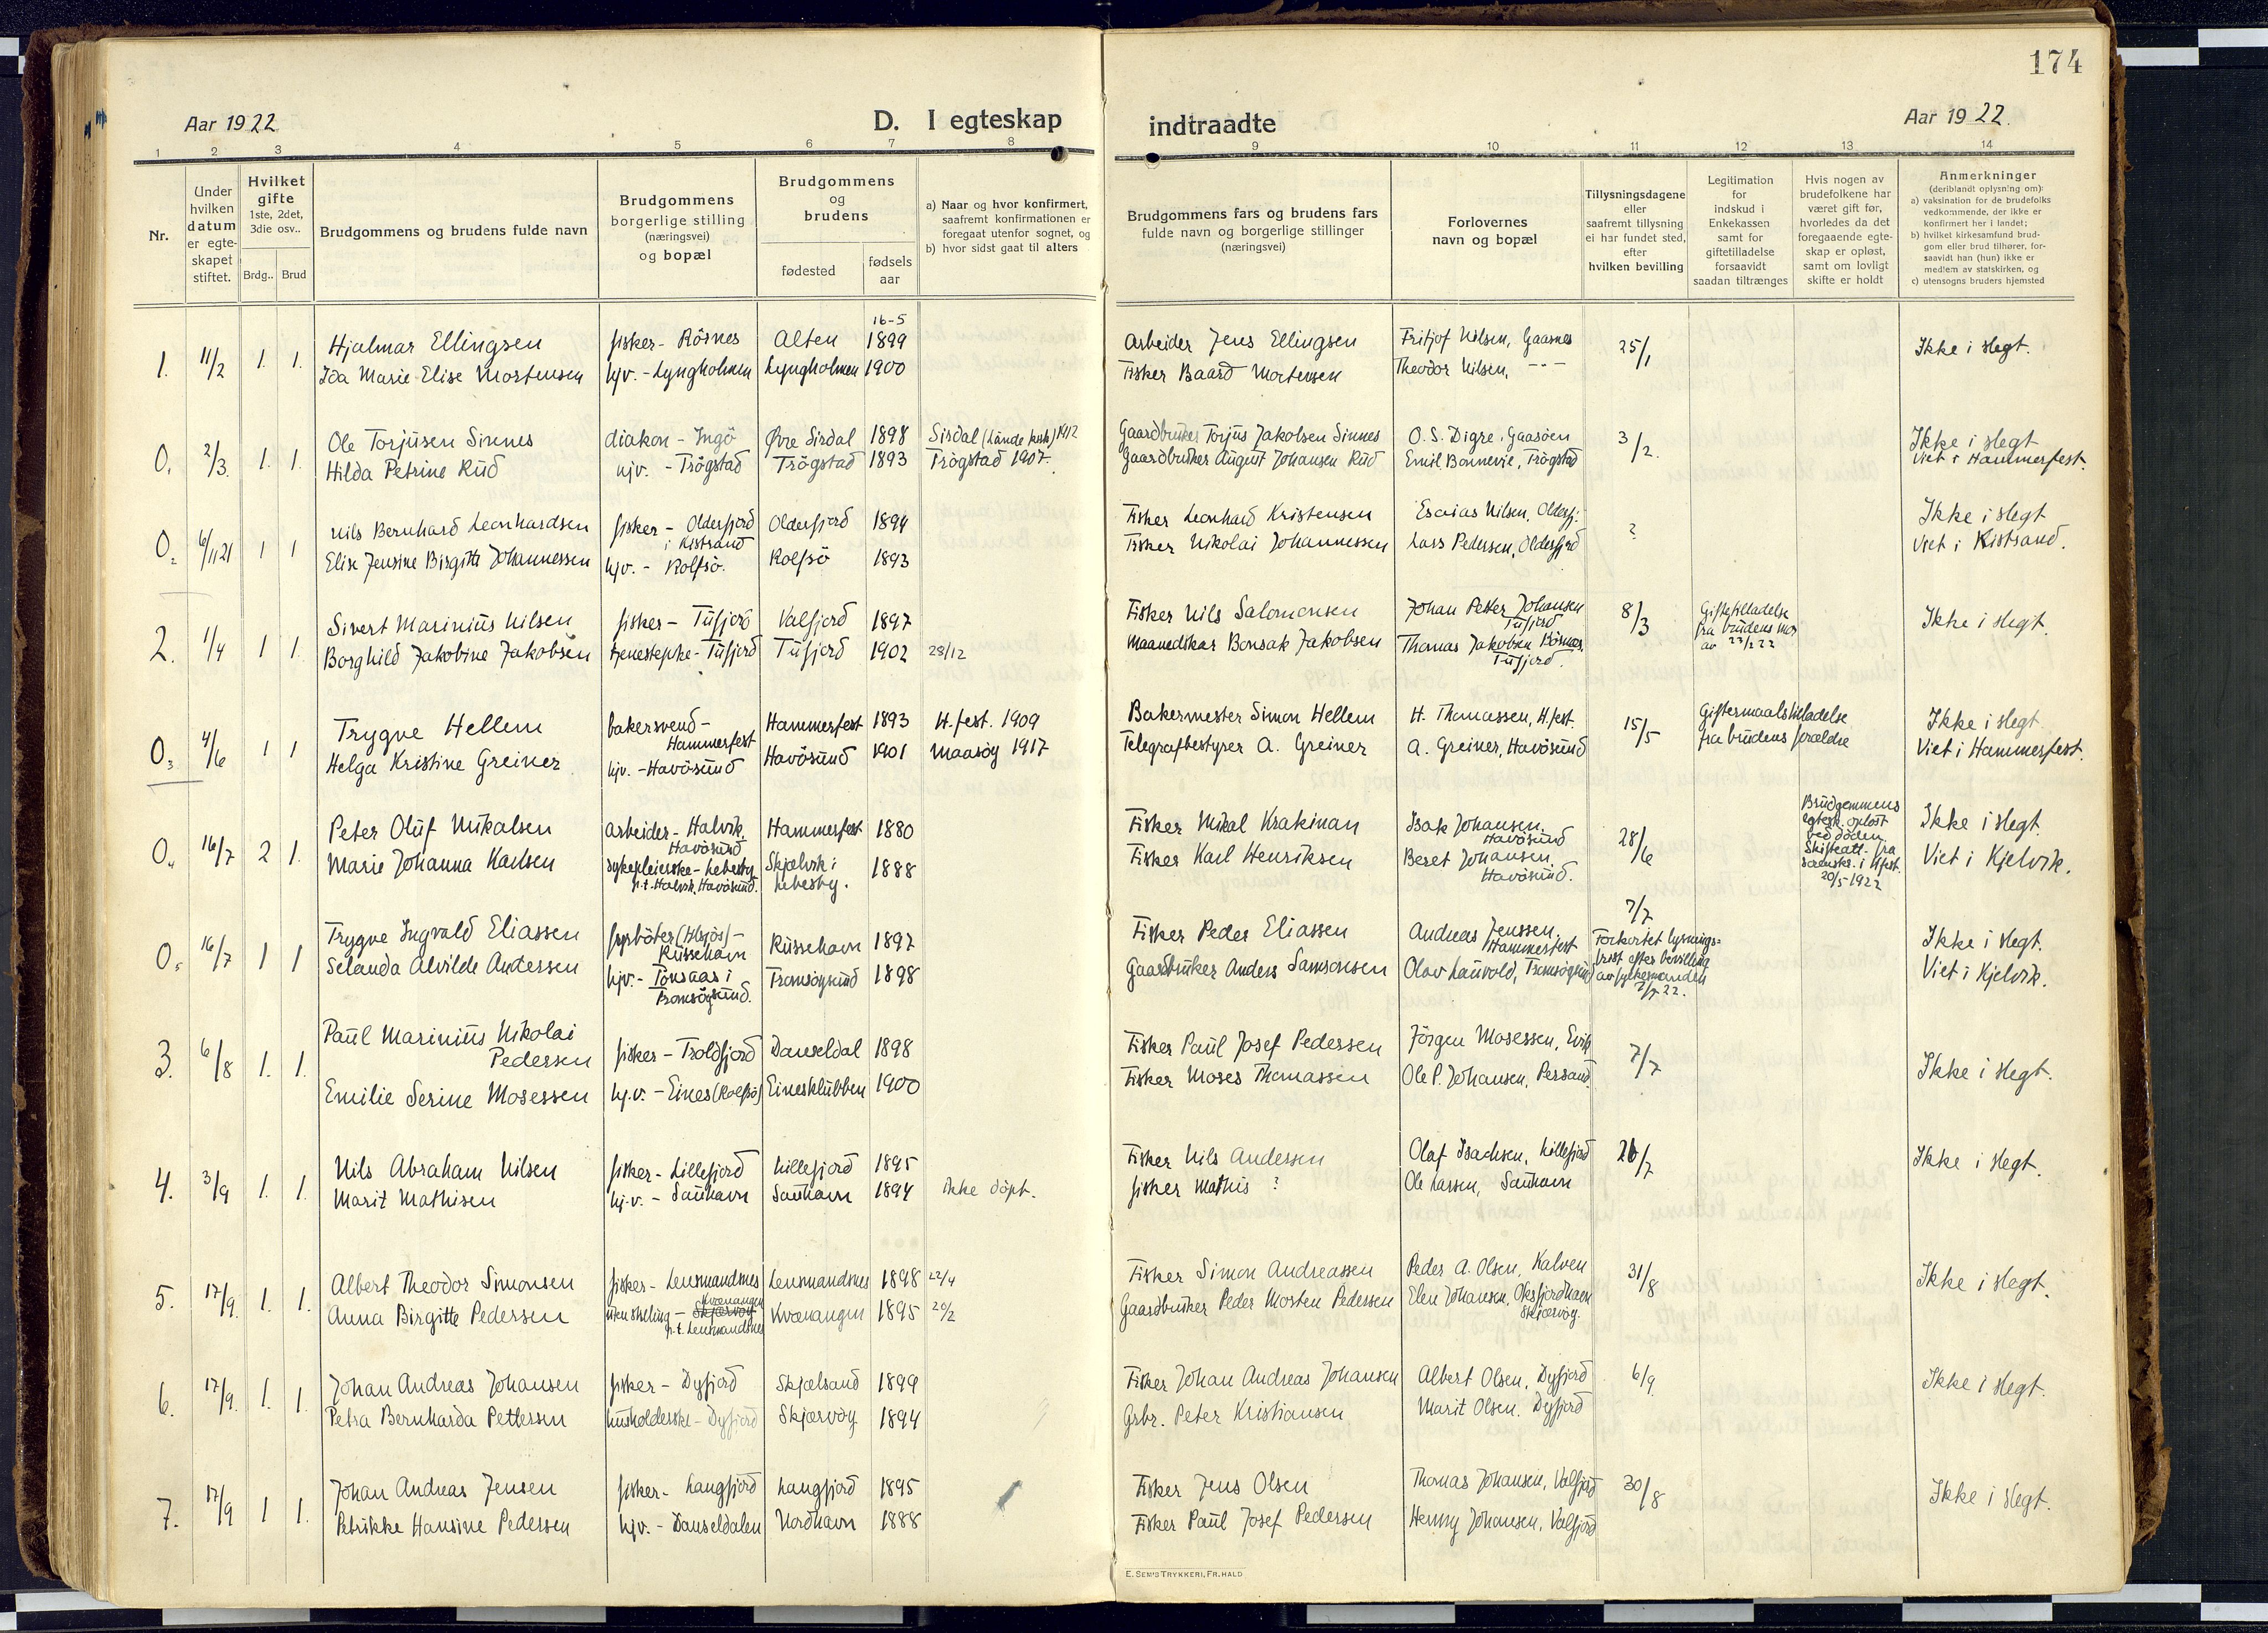 174
Aar 1922
D. I egteskap
indtraadte
Aar 1922.
1 2 3 4 5 6 7 8 9 10 11 12 13 14
Nr.
Under
hvilken
datum
er egte-
skapet
stiftet.
Hvilket
gifte
1ste, 2det,
3die osv..
Brdg..
Brud
Brudgommens og brudens fulde navn
Brudgommens
borgerlige stilling
(næringsvei)
og bopæl
Brudgommens
og
brudens
fødested
fødsels
aar
a) Naar og hvor konfirmert,
saafremt konfirmationen er
foregaat utenfor sognet, og
b) hvor sidst gaat til alters
Brudgommens fars og brudens fars
fulde navn og borgerlige stillinger
(næringsvei)
Forlovernes
navn og bopæl
Tillysningsdagene
eller
saafremt tillysning
ei har fundet sted,
efter
hvilken bevilling
Legitimation
for
indskud i
Enkekassen
samt for
giftetilladelse
forsaavidt
saadan tiltrænges
Hvis nogen av
brudefolkene har
været gift før,
hvorledes da det
foregaaende egte-
skap er opløst,
samt om lovligt
skifte er holdt
Anmerkninger
(deriblandt oplysning om):
a) vaksination for de brudefolks
vedkommende, der ikke er
konfirmert her i landet;
b) hvilket kirkesamfund brud-
gom eller brud tilhører, for-
saavidt han (hun) ikke er
medlem av statskirken, og
c) utensogns bruders hjemsted
16-5
1. 11/2 1. 1. Hjalmar Ellingsen fisker - Rösnes Alten 1899 Arbeider Jens Ellingsen Fritjof Nilsen, Gaasnes 25/1 Ikke i slegt.
Ida Marie Elise Mortensen hjv. - Lyngholmen Lyngholmen 1900 Fisker Baard Mortensen Theodor Nilsen, - - -
0. 2/3. 1. 1. Ole Torjusen Sinnes diakon - Ingö Øvre Sirdal 1898 Sirdal (Lunde kirk) 1912 Gaardbruker Torjus Jakobsen Sinnes O. S. Digre, Gaasöen 3/2. Ikke i slegt
Hilda Petrine Rud hjv. - Trögstad Trögstad 1893 Trögstad 1907. Gaardbruker August Johansen Rud Emil Bonnevie, Trögstad Viet i Hammerfest.
0. 6/11 21 1 1 Nils Bernhard Leonhardsen fisker - Olderfjord i Kistrand Olderfjord 1894 Fisker Leonhard Kristensen Esaias Nilsen, Olderfj: ? Ikke i slegt
Elise Jensine Birgitte Johannessen hjv. - Rolfsö. Rolfsö 1893 Fisker Nikolai Johannessen Lars Pedersen, Olderfjord Viet i Kistrand.
2. 1/4 1 1 Sivert Marinius Nilsen fisker - Tufjord Valfjord 1897 Fisker Nils Salomonsen Johan Peter Johansen Tufjord 8/3 Giftetilladelse fra brudens mor av 23/2 22 Ikke i slegt.
Borghild Jakobine Jakobsen tjenestepike - Tufjord Tufjord 1902 28/12 Maanedskar Bonsak Jakobsen Thomas Jakobsen Börnes, Tufjord.
0. 4/6 1 1 Trygve Hellem bakersvend - Hammerfest Hammerfest 1893 H.fest. 1909 Bakermester Simon Hellem H. Thomassen, H.fest. 15/5 Giftermaalstilladelse Ikke i slegt
Helga Kristine Greiner hjv. - Havösund Havösund 1901 Maasöy 1917 Telegrafbestyrer A. Greiner A. Greiner, Havösund fra brudens forældre Viet i Hammerfest.
0. 16/7 2 1. Peter Oluf Mikalsen arbeider - Halvik, Havösund Hammerfest 1880 Fisker Mikal Krakinan Isak Johansen, Havösund 28/6 Brudgommens egtesk. opløst ved döden. Skifteatt. fra sorensks. i Hfest. 20/5 1922 Ikke i slegt.
Marie Johanna Karlsen sykepleierske - Lebesby, p.t. Halvik, Havösund. Skjelvik i Lebesby. 1888 Fisker Karl Henriksen Beret Johansen, Havösund. Viet i Kjelvik.
0. 16/7 1 1 Trygve Ingvald Eliassen fyrböter (Hbjös) - Russehavn Russehavn 1897 Fisker Peder Eliassen Andreas Jenssen, Hammerfest 7/7 Forkortet lysnings- Ikke i slegt.
Selanda Alvilde Andersen hjv. - Tonsaas i Tromsöysund. Tromsöysund 1898 Gaardbruker Anders Samsonsen Olav Lauvold, Tromsöysund frist efter bevilling av sysselmanden 7/7 22. Viet i Kjelvik.
3. 6/8 1. 1. Paul Marinius Nikolai Pedersen fisker - Troldfjord Dauseldal 1898 Fisker Paul Josef Pedersen Jörgen Mosessen, Evik 7/7 Ikke i slegt.
Emilie Serine Mosessen hj.v. - Eines (Rolfsö) Einesklubben 1900 Fisker Moses Thomassen Ole P. Johansen, Persand
4. 3/9 1. 1. Nils Abraham Nilsen fisker - Lillefjord Lillefjord 1895 Fisker Nils Andersen Olaf Isachsen, Lillefjord 26/7 Ikke i slegt.
Marit Mathisen hj.v. - Sauhavn Sauhavn 1894 ikke döpt. fisker Mathis ? Ole Larsen, Sauhavn
5. 17/9. 1. 1. Albert Theodor Simonsen fisker - Lensmandsnes Lensmandsnes 1898 22/4 Fisker Simon Andreassen Peder A. Olsen, Kalven 31/8 Ikke i slegt.
Anna Birgitte Pedersen uten stilling - Skjærvöy Kvænangen p.t. Lensmandsnes Kvænangen 1895 20/2 Gaardbruker Peder Morten Pedersen Elen Johansen, Oksfjordhavn Skjærvöy.
6. 17/9. 1. 1. Johan Andreas Johansen fisker - Dyfjord Skjelsand 1899 Fisker Johan Andreas Johansen Albert Olsen, Dyfjord 6/9 Ikke i slegt.
Petra Bernharda Pettersen husholderske - Dyfjord Skjærvöy 1894 Grbr. Peter Kristiansen Marit Olsen. Dyfjord
7. 17/9 1 1. Johan Andreas Jensen fisker - Langfjord Langfjord 1895 Fisker Jens Olsen Thomas Johansen, Valfjord 30/8 Ikke i slegt.
Petrikke Hansine Pedersen hjv. - Dauseldalen Nordhavn 1888 Fisker Paul Josef Pedersen Henny Johansen, Valfjord
E. SEM'S TRYKKERI, FR.HALD